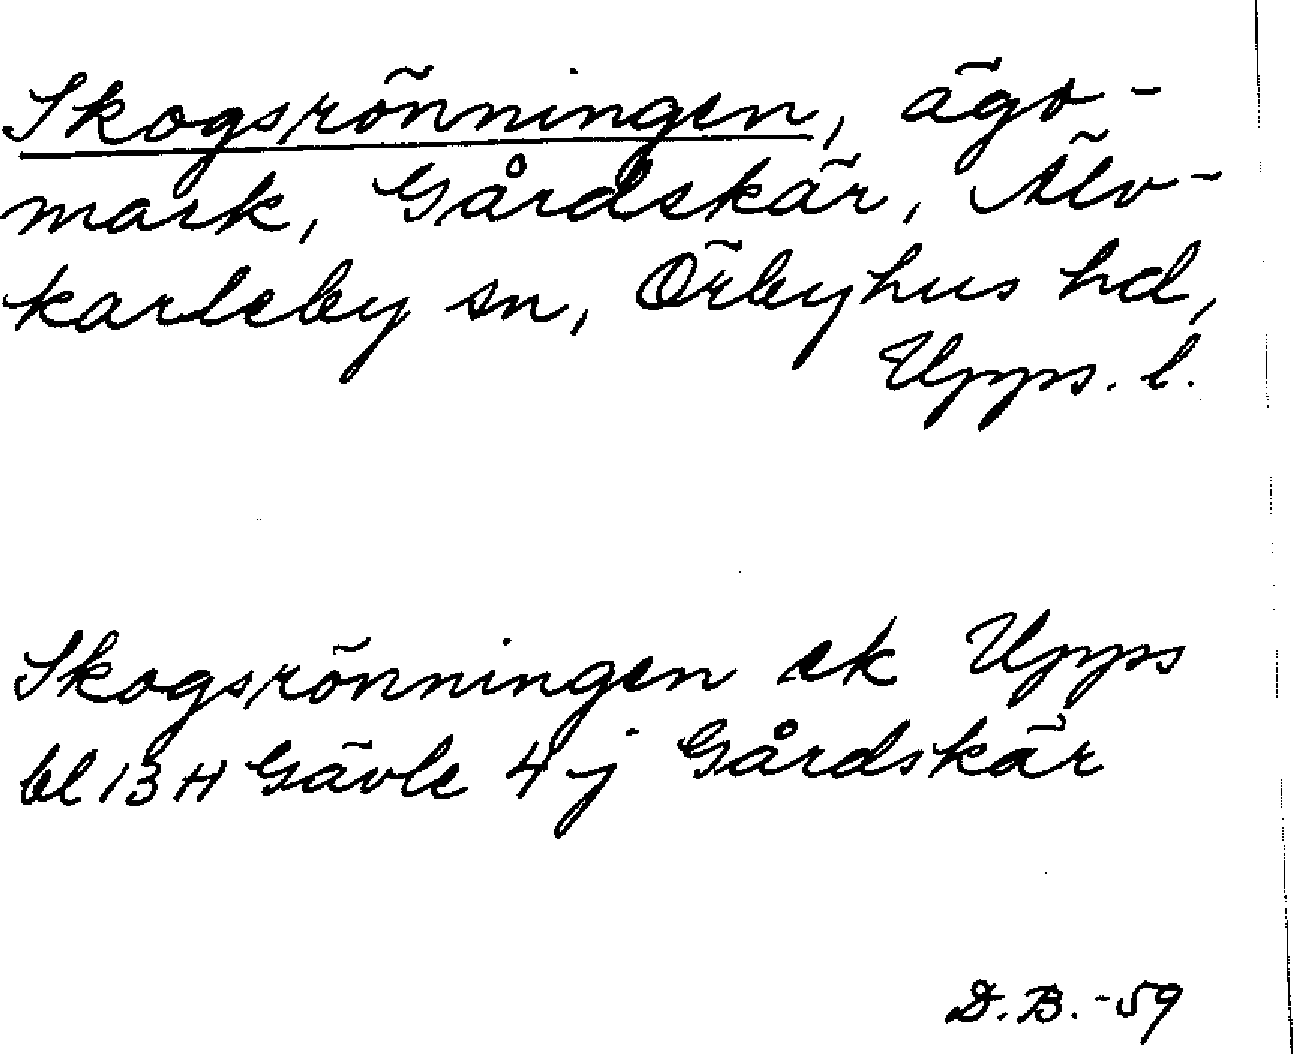 Skogsrönningen, ägo-
mark, Gårdskär, Älv-
karleby sn, Örbyhus hd,
Upps. l.
Skogsrönningen ek Upps
bl 13 H Gävle 4 j Gårdskär
D.B.-59